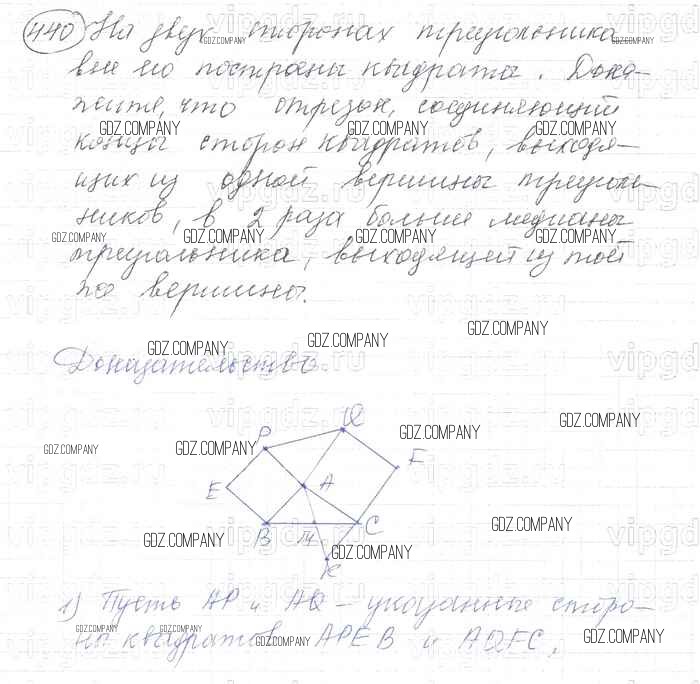 440 На двух сторонах треугольника
вне его построены квадраты. Дока-
жите, что отрезок, соединяющий
концы сторон квадратов, выходя-
щих из одной вершины треуголь-
ников, в 2 раза больше медианы
треугольника, выходящей из той
же вершины.
Доказательство.
P Q
F
E A
B M C
K
1) Пусть AP и AQ – указанные сторо-
ны квадратов APEB и AQFC,
GDZ.COMPANY
vipgdz.ru